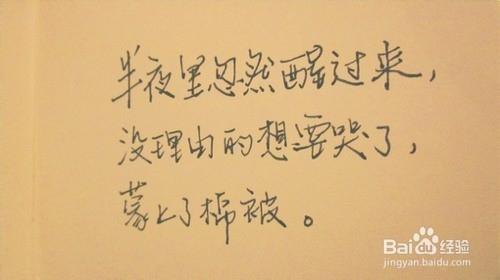 半夜里忽然醒过来，
没理由的想要哭了，
蒙上了棉被。
Baidu经验
jingyan.baidu.com